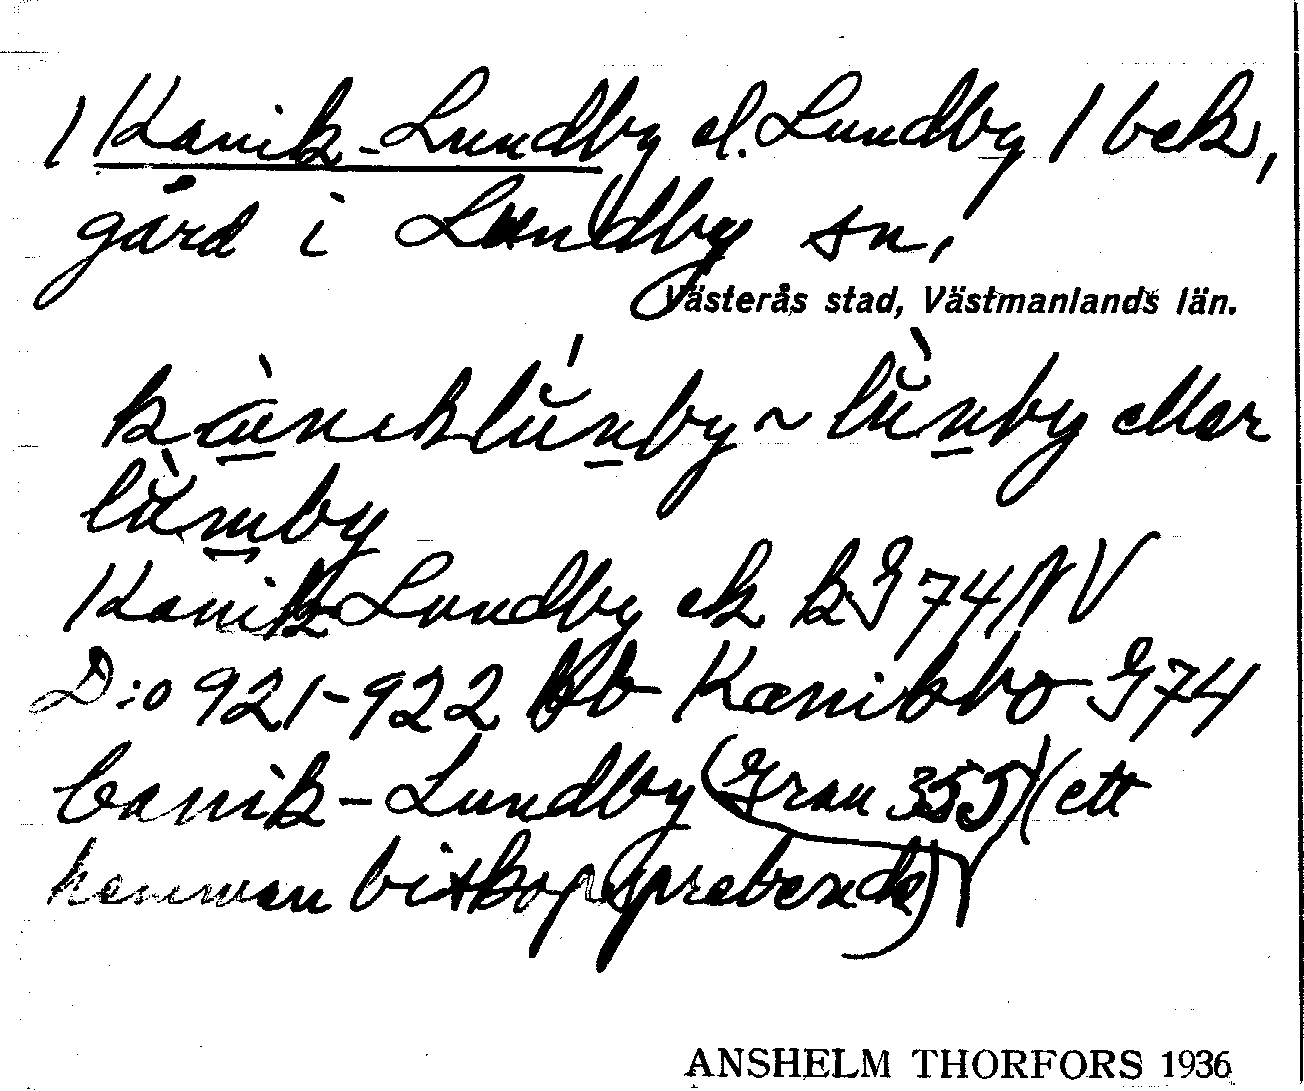 / Kanik-Lundby el. Lundby / bek,
gård i Lundby sn.
Västerås stad, Västmanlands län.
kànıklúnby ~ lùnby eller
lùmby
Kanik Lundby ek bG 74 NV
D:o 921-922 Jb Kanikbo G74
Canik-Lundby (Grau 355) (ett
hemman biskopsprebende)
ANSHELM THORFORS 1936